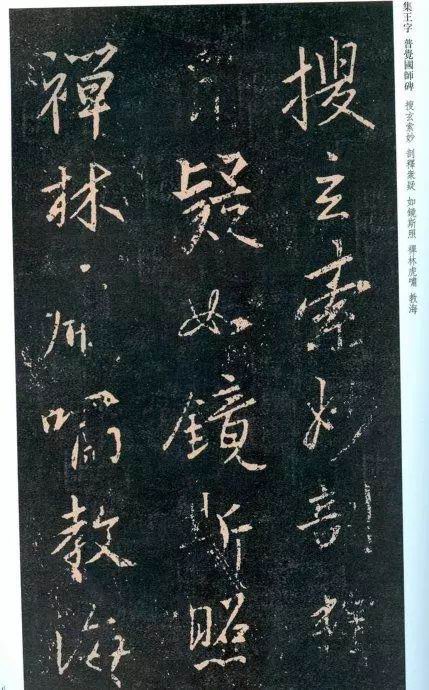 集王字 普覺國師碑 搜玄索妙 剖釋衆疑 如鏡斯照 禪林虎嘯 教海
搜玄索妙剖釋
衆疑如鏡斯照
禪林虎嘯教海